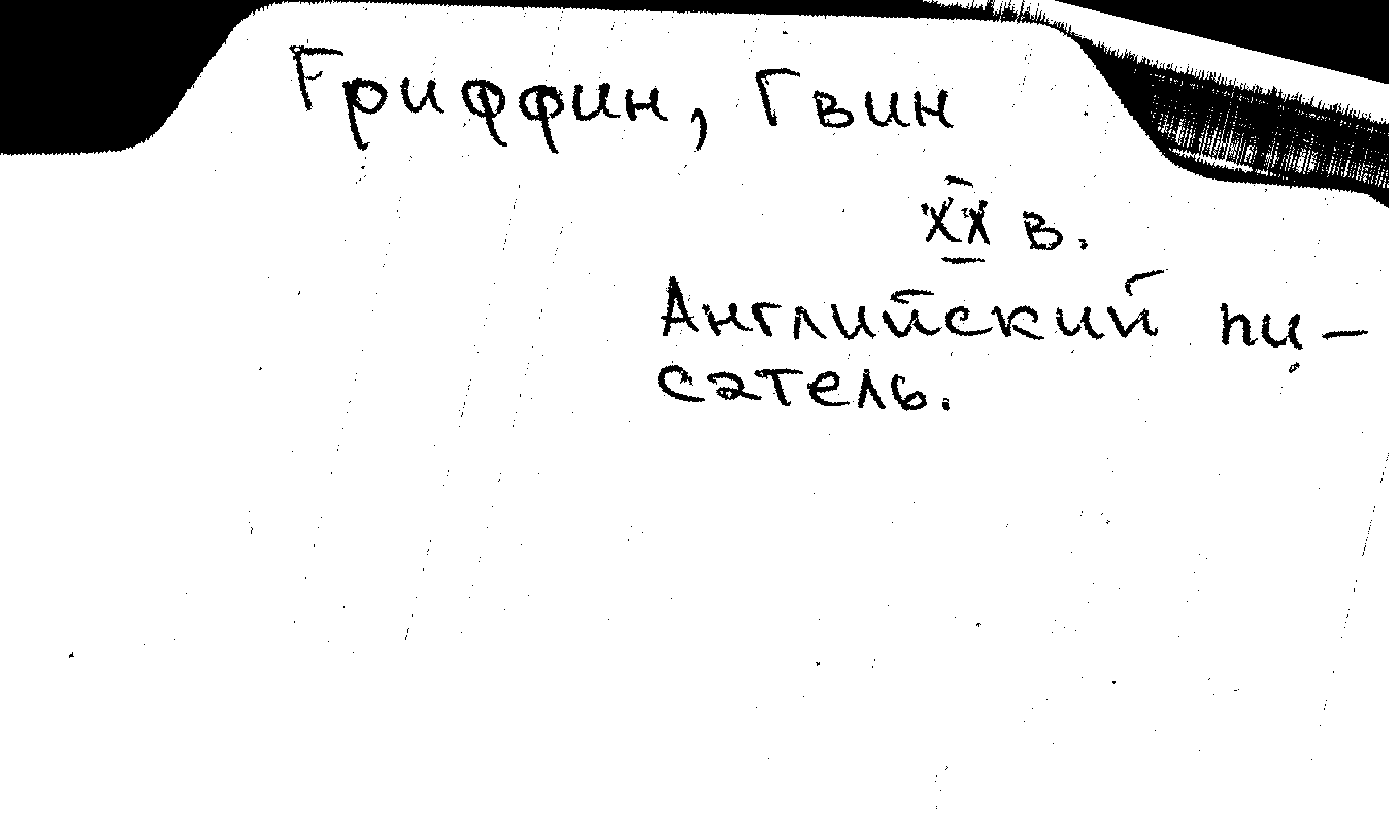 Гриффин, Гвин
XX в.
Английский пи-
сатель.